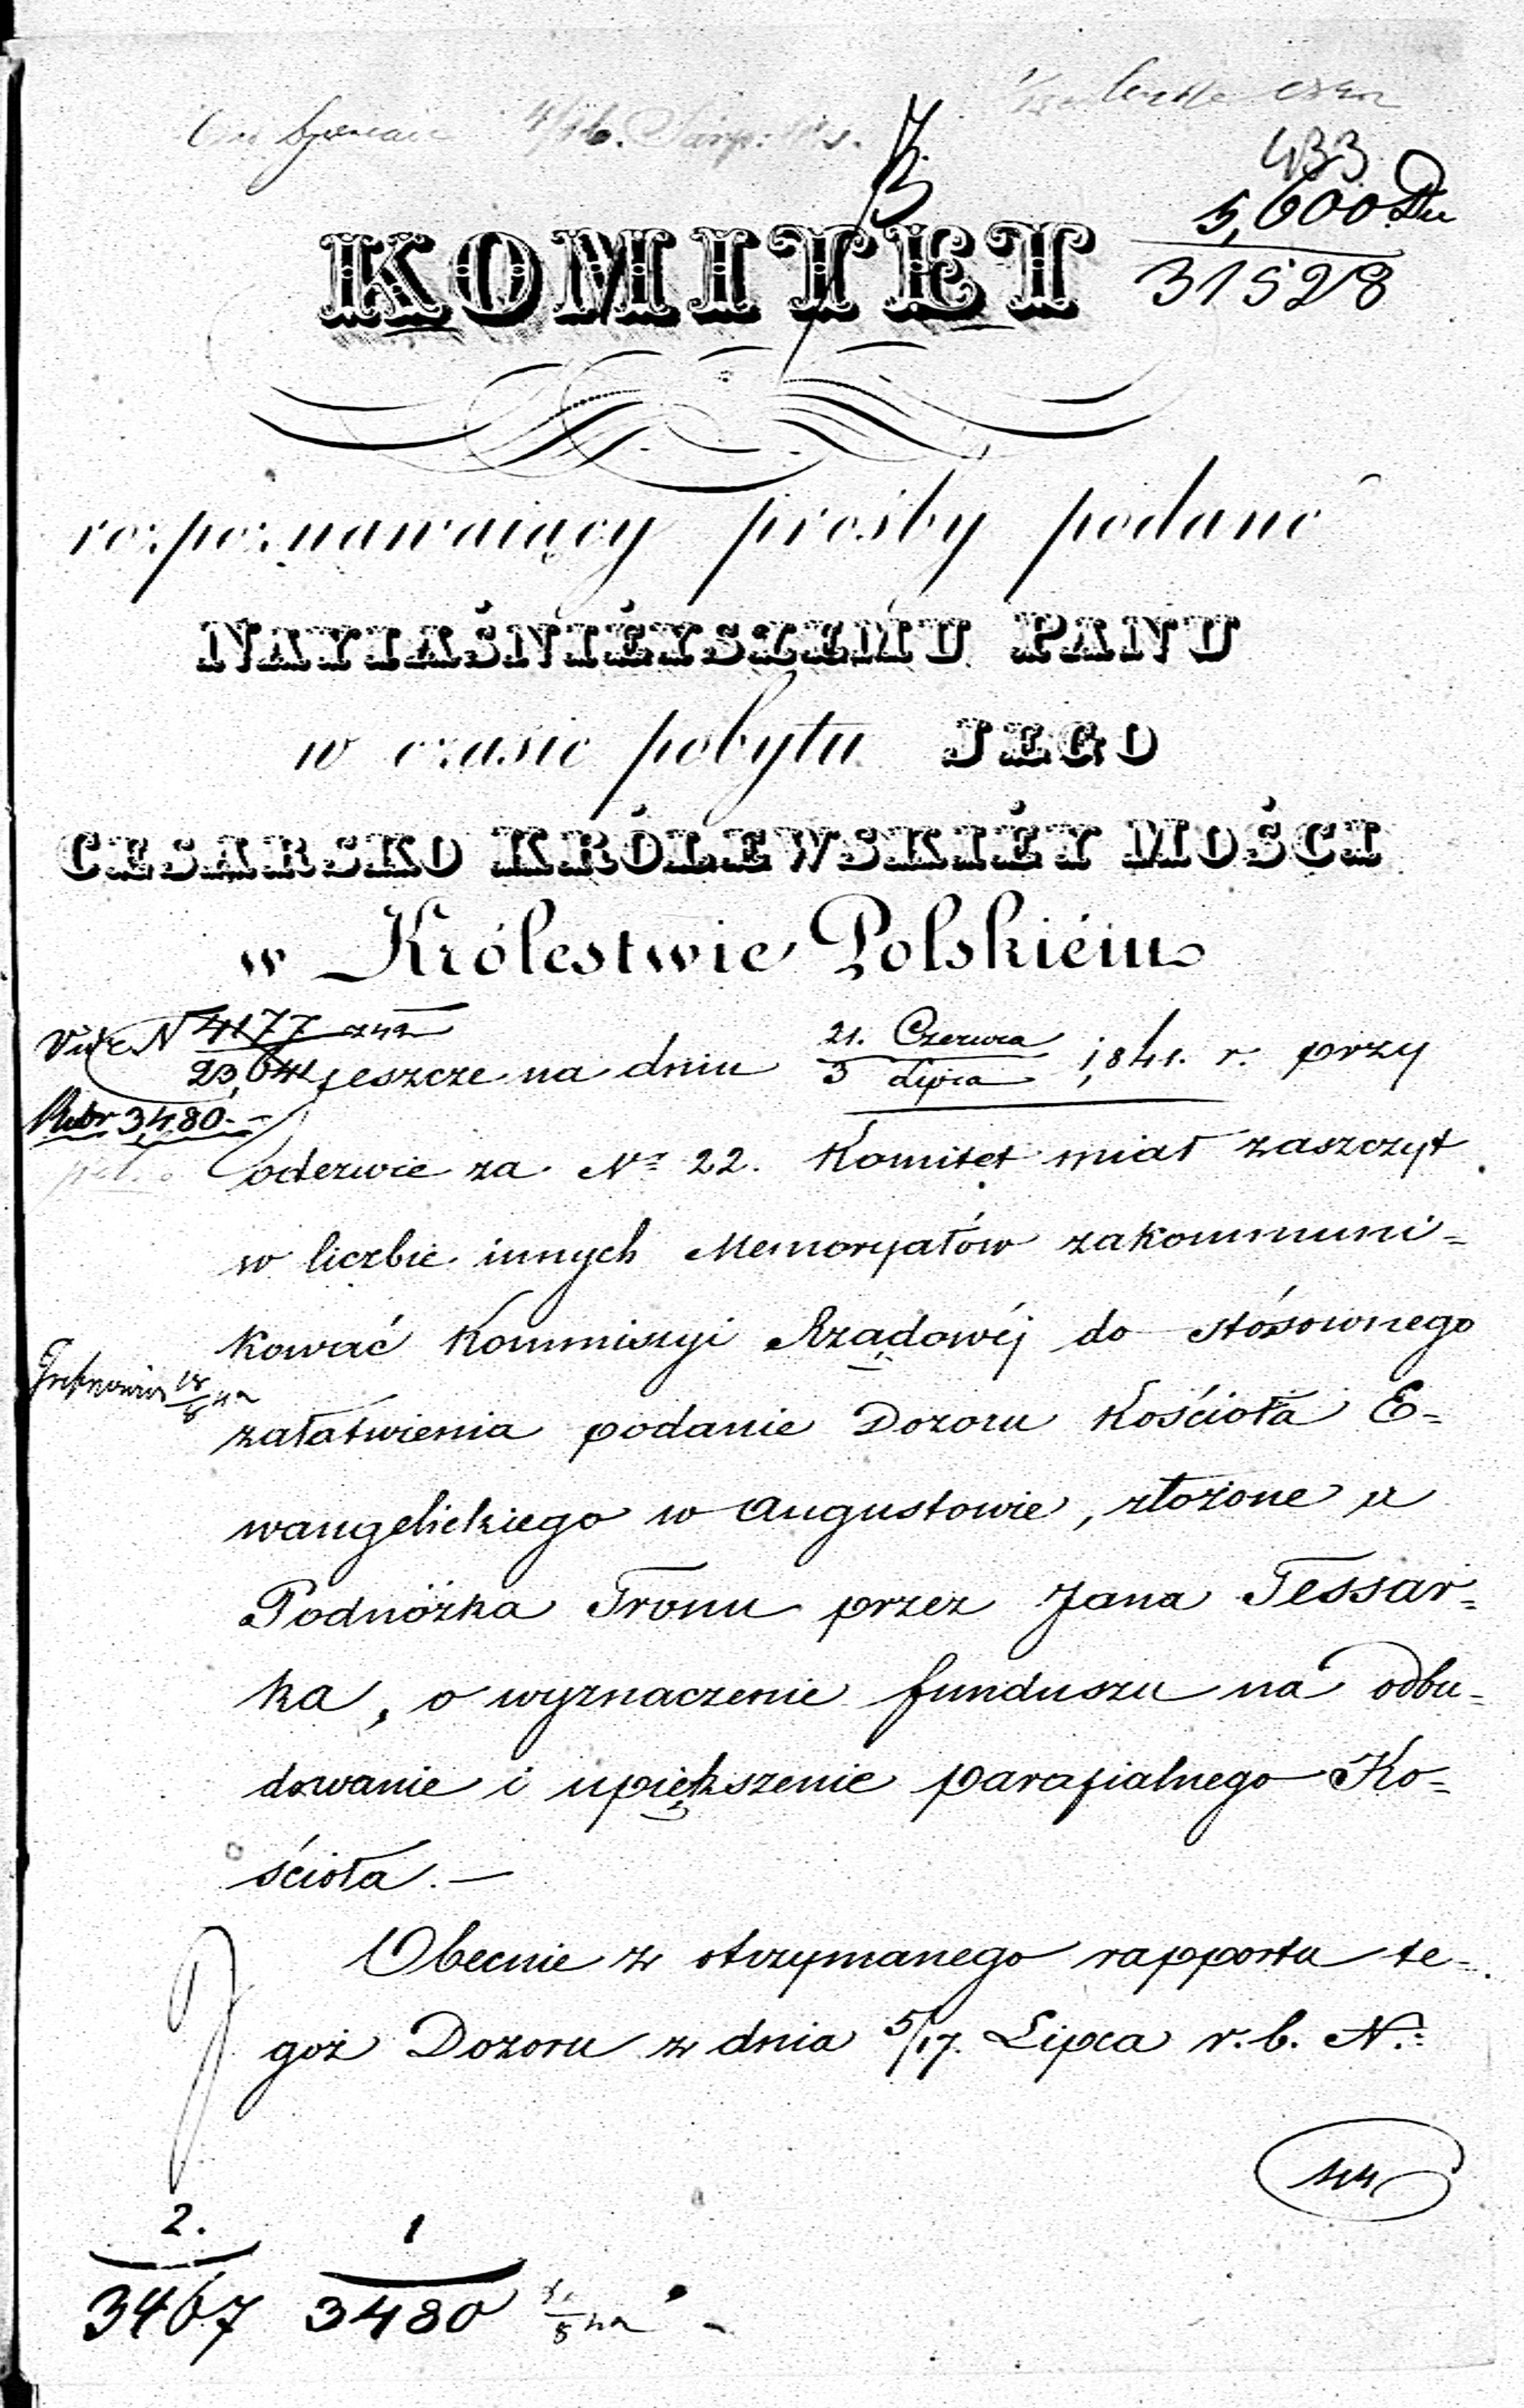 433
5,600
31528
KOMITET
rozpoznawaiący prośby podane
NAYIAŚNIÉYSZEMU PANU
w czasie pobytu JEGO
CESARSKO KRÓLEWSKIÉY MOŚCI
w Królestwie Polskiém
Vide N 4177
23,041 jeszcze na dniu 21. Czerwca / 3 Lipca 1841. r. przy
3480.-
odezwie za Nr 22. Komitet miał zaszczyt
w liczbie innych Memoryałów zakommuni=
kować Kommiszyi Rządowéj do stósownego
załatwienia podanie Dozoru Kościoła E=
wangelickiego w Augustowie, złożone u
Podnóżka Tronu przez Jana Tessar=
ka, o wyznaczenie funduszu na odbu=
dowanie i upiększenie parafialnego Ko=
ścioła.—
Obecnie z otrzymanego rapportu te=
goż Dozoru z dnia 5/17. Lipca r. b. N.:
2. 1
3467 3480